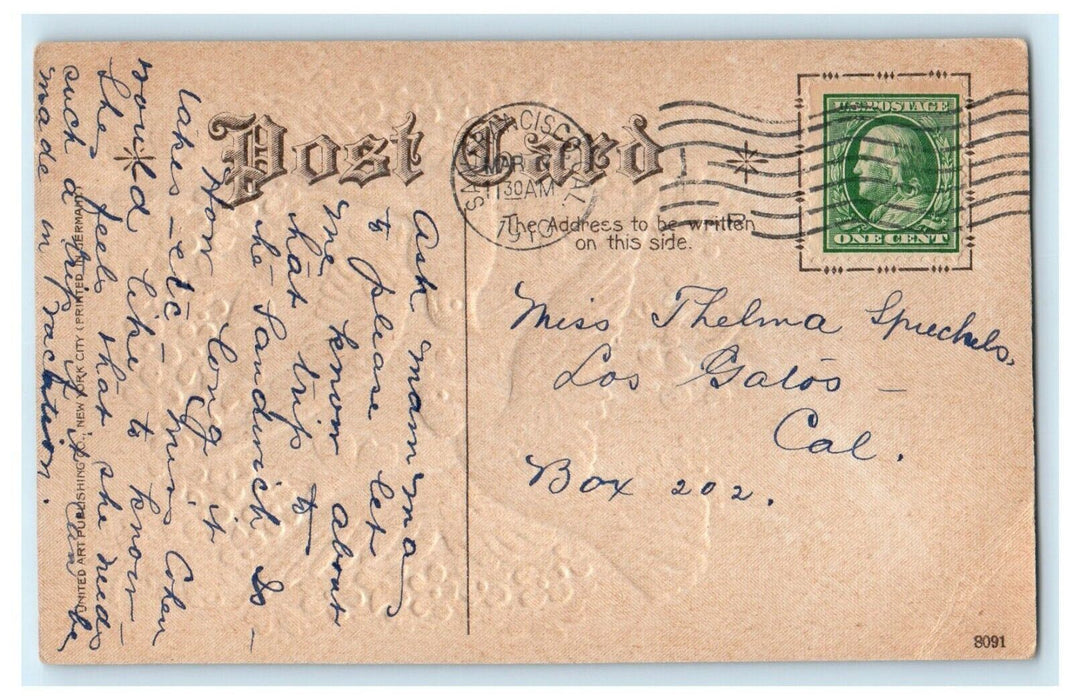 Post Card
SAN FRANCISCO, CAL.
MAR
11 30 AM
1910
U.S. POSTAGE
ONE CENT
The Address to be written
on this side.
Miss Thelma Spreckels.
Los Gatos –
Cal.
Box 202.
Ask mamma
to please let
me know about
that trip to
the Sandwich Is –
How long it
takes – etc – Miss Cohen
would like to know –
She feels that she needs
such a trip, if it can be
made in vacation.
UNITED ART PUBLISHING CO., NEW YORK CITY (PRINTED IN GERMANY)
8091